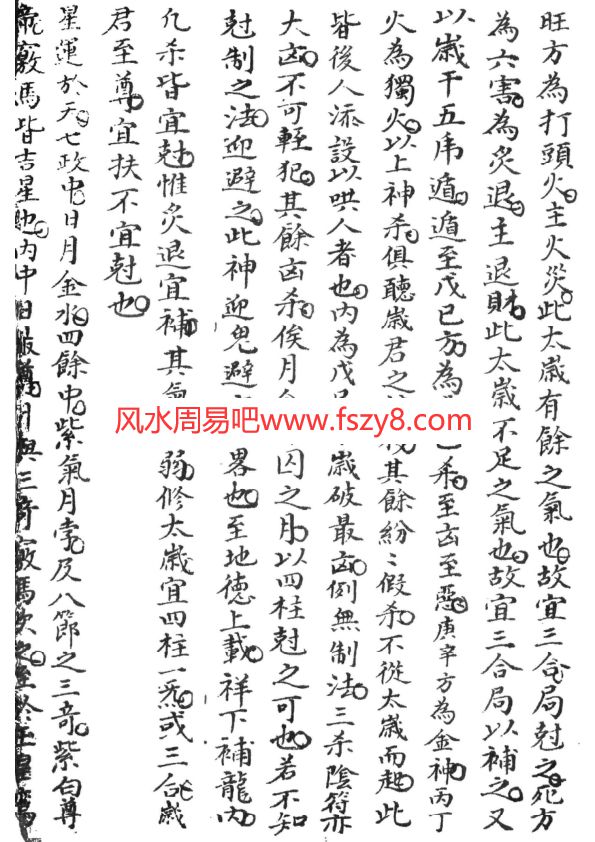 旺方為打頭火。主火災。此太歲有餘之氣也。故宜三合局尅之。死方
為六害。為炙退。主退財。此太歲不足之氣也。故宜三合局以補之。又
以歲干五虎遁。遁至戊己方為己杀。至凶至惡。庚辛方為金神。丙丁
火為獨火。以上神杀。俱聽歲君之其餘紛〻假杀。不從太歲而起。此
皆後人添設以哄人者也。内為戊歲破最凶。例無制法。三杀陰符亦
大凶。不可輕犯。其餘凶杀。俟月囚之月。以四柱尅之可也。若不知
尅制之法。迎避之。此神迎鬼避畧也。至地德上載。祥下補龍。内
凡杀皆宜尅。惟炙退宜補。其氣弱。修太歲宜四柱一炁。或三合。歲
君至尊。宜扶不宜尅也。
星運於天。七政中日月金水。四餘中紫氣月孛。及八節之三奇。紫白尊
帝竅馬皆吉星也。内中日月與三奇竅馬次之。至於
风水周易吧www.fszy8.com